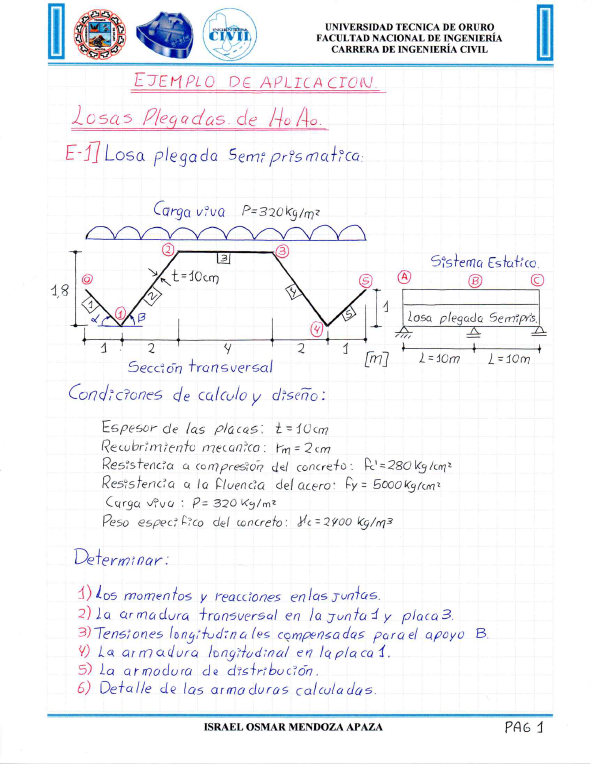 UNIVERSIDAD TECNICA DE ORURO
FACULTAD NACIONAL DE INGENIERÍA
CARRERA DE INGENIERÍA CIVIL
CIVIL
EJEMPLO DE APLICACION
Losas Plegadas de HoAo.
E-1] Losa plegada Semiprismatica:
Carga viva P=320Kg/m²
2 3 3
Sistema Estatico.
0 t=10cm 5 A B C
1,8 1 1 2 4 5 1 Losa plegada Semipris.
α B 4
1 2 4 2 1 [m] L=10m L=10m
Sección transversal
Condiciones de calculo y diseño:
Espesor de las placas: t=10cm
Recubrimiento mecanico: rm=2cm
Resistencia a compresión del concreto: fc'=280Kg/cm²
Resistencia a la fluencia del acero: fy = 5000Kg/cm²
Carga viva: P= 320 Kg/m²
Peso especifico del concreto: γc=2400 Kg/m³
Determinar:
1) Los momentos y reacciones en las juntas.
2) La armadura transversal en la junta 1 y placa 3.
3) Tensiones longitudinales compensadas para el apoyo B.
4) La armadura longitudinal en la placa 1.
5) La armadura de distribución.
6) Detalle de las armaduras calculadas.
ISRAEL OSMAR MENDOZA APAZA
PAG 1